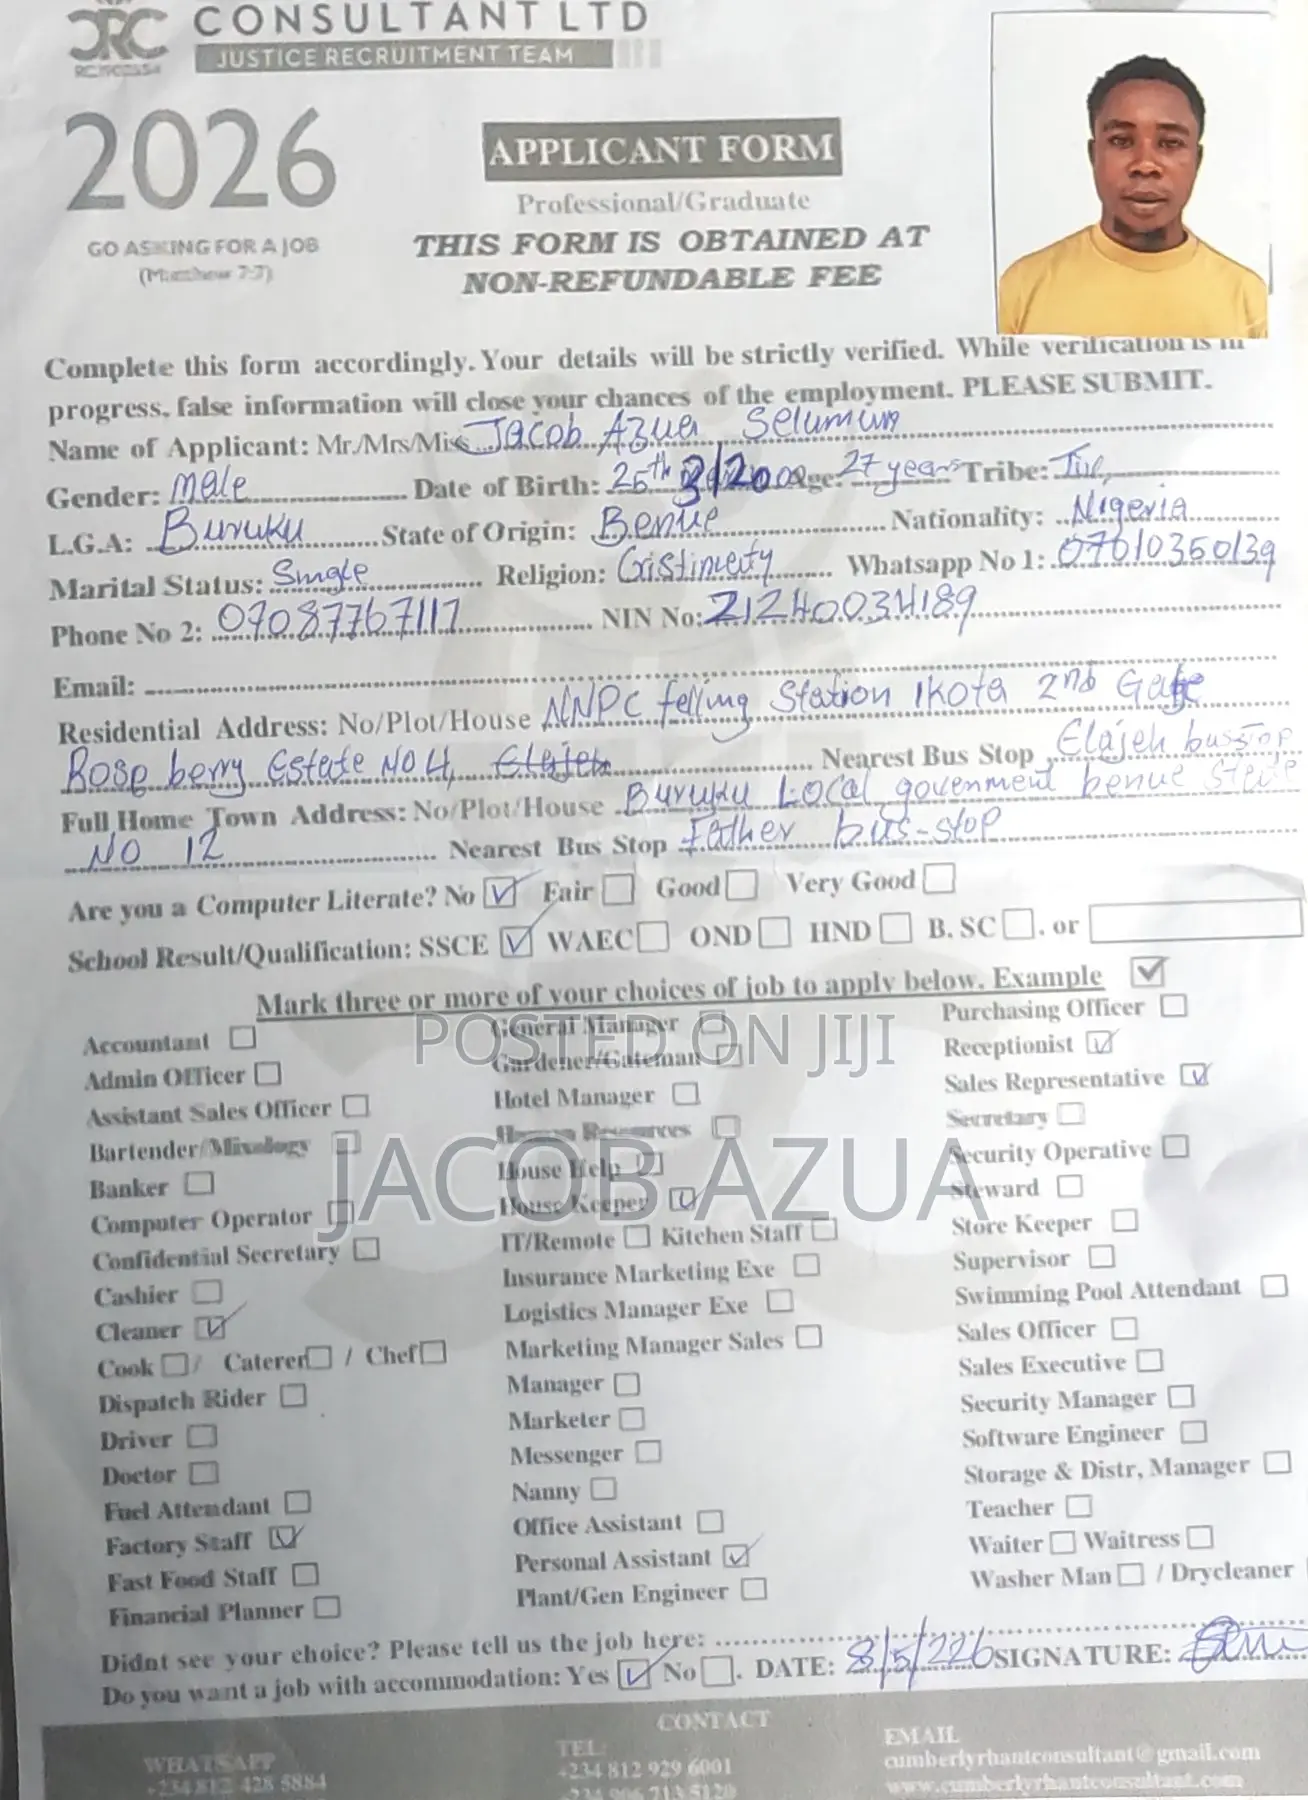 CRC CONSULTANT LTD
JUSTICE RECRUITMENT TEAM
2026
GO ASKING FOR A JOB
(Matthew 7:7)
APPLICANT FORM
Professional/Graduate
THIS FORM IS OBTAINED AT
NON-REFUNDABLE FEE
Complete this form accordingly. Your details will be strictly verified. While verification is in
progress, false information will close your chances of the employment. PLEASE SUBMIT.
Name of Applicant: Mr./Mrs/Miss Jacob Azua Selumun
Gender: Male Date of Birth: 25th Age: 27 years Tribe: Tiv
L.G.A: Buruku State of Origin: Benue Nationality: Nigeria
Marital Status: Single Religion: Cristinety Whatsapp No 1: 07010350139
Phone No 2: 07087767117 NIN No: 21240034189
Email:
Residential Address: No/Plot/House NNPC felling Station Ikota 2nd Gate
Rose berry Estate No 4, Nearest Bus Stop Elajeh busstop
Full Home Town Address: No/Plot/House Buruku Local government benue State
No 12 Nearest Bus Stop Father bus-stop
Are you a Computer Literate? No Fair Good Very Good
School Result/Qualification: SSCE WAEC OND HND B. SC . or
Mark three or more of your choices of job to apply below. Example
Accountant
Admin Officer
Assistant Sales Officer
Bartender/Mixology
Banker
Computer Operator
Confidential Secretary
Cashier
Cleaner
Cook / Caterer / Chef
Dispatch Rider
Driver
Doctor
Fuel Attendant
Factory Staff
Fast Food Staff
Financial Planner
General Manager
Gardener/Gateman
Hotel Manager
Human Resources
House Help
House Keeper
IT/Remote Kitchen Staff
Insurance Marketing Exe
Logistics Manager Exe
Marketing Manager Sales
Manager
Marketer
Messenger
Nanny
Office Assistant
Personal Assistant
Plant/Gen Engineer
Purchasing Officer
Receptionist
Sales Representative
Secretary
Security Operative
Steward
Store Keeper
Supervisor
Swimming Pool Attendant
Sales Officer
Sales Executive
Security Manager
Software Engineer
Storage & Distr, Manager
Teacher
Waiter Waitress
Washer Man / Drycleaner
POSTED ON JIJI
JACOB AZUA
Didnt see your choice? Please tell us the job here:
Do you want a job with accommodation: Yes No . DATE: 8/5/226 SIGNATURE:
CONTACT
WHATSAPP
+234 812 428 5884
TEL:
+234 812 929 6001
+234 906 713 5120
EMAIL
cumberlyrhantconsultant@gmail.com
www.cumberlyrhantconsultant.com